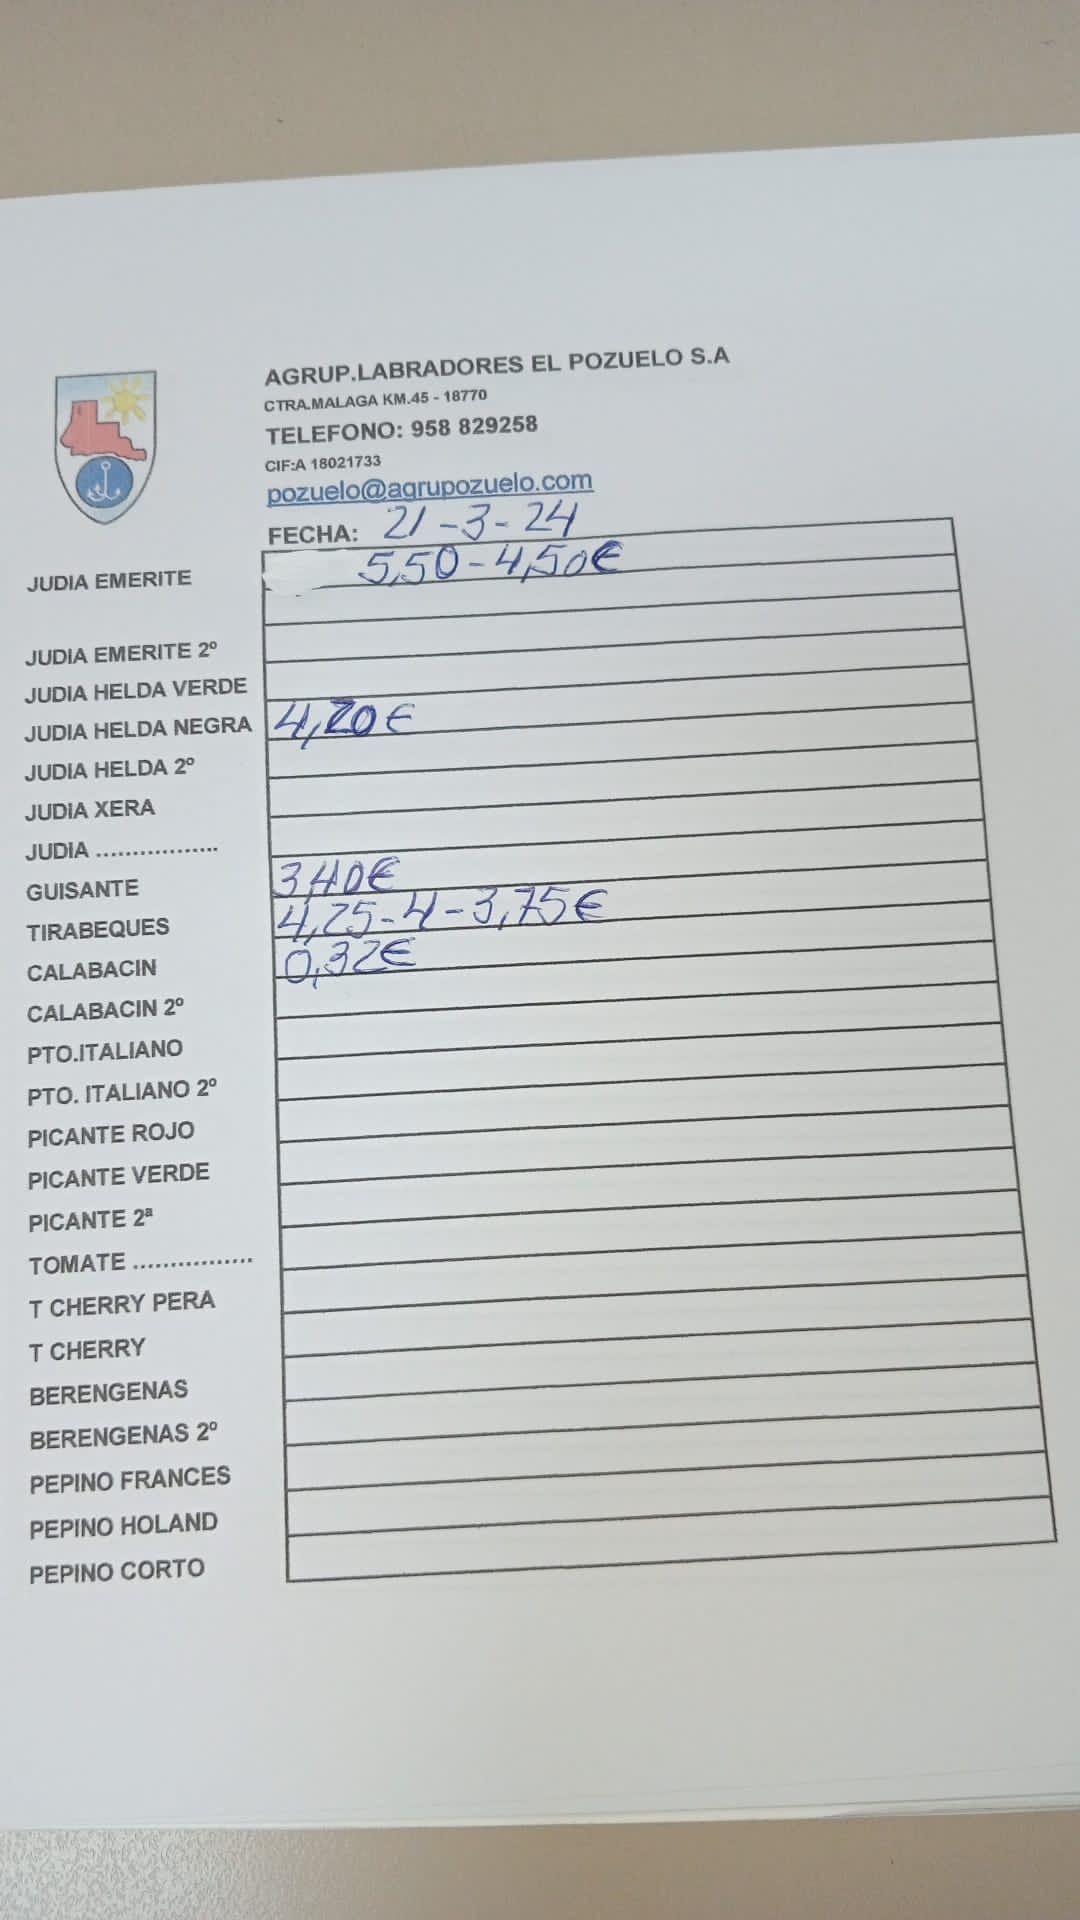 AGRUP.LABRADORES EL POZUELO S.A
CTRA.MALAGA KM.45 - 18770
TELEFONO: 958 829258
CIF:A 18021733
pozuelo@agrupozuelo.com
FECHA: 21-3-24
JUDIA EMERITE 5,50-4,50€
JUDIA EMERITE 2º
JUDIA HELDA VERDE
JUDIA HELDA NEGRA 4,20€
JUDIA HELDA 2º
JUDIA XERA
JUDIA .................
GUISANTE 3,40€
TIRABEQUES 4,25-4-3,75€
CALABACIN 0,32€
CALABACIN 2º
PTO.ITALIANO
PTO. ITALIANO 2º
PICANTE ROJO
PICANTE VERDE
PICANTE 2ª
TOMATE ................
T CHERRY PERA
T CHERRY
BERENGENAS
BERENGENAS 2º
PEPINO FRANCES
PEPINO HOLAND
PEPINO CORTO